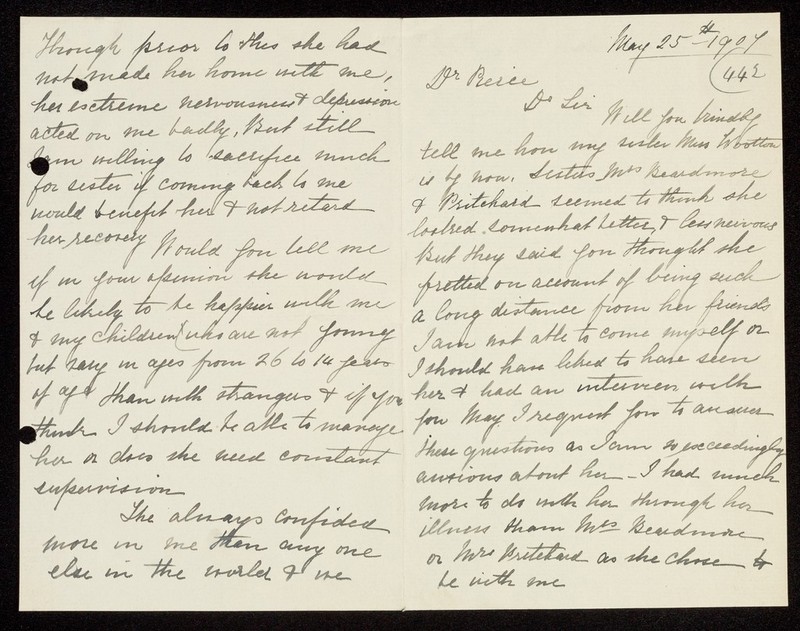 May 25th 1907
442
Dr Pierce
Dr Sir Will you kindly
tell me how my sister Miss Wootton
is by now. Sisters Mrs Beardmore
& Pritchard seemed to think she
looked somewhat better, & less nervous
But they said you thought she
fretted on account of being such
a long distance from her friends
I am not able to come myself or
I should have liked to have seen
her & had an interview with
you May I request you to answer
these questions as I am so exceedingly
anxious about her – I had much
more to do with her through her
illness than Mrs Beardmore
or Mrs Pritchard as she chose to
be with me
Though prior to this she had
not made her home with me,
her extreme nervousness & depression
acted on me badly, But still
I am willing to sacrifice much
for sister if coming back to me
would benefit her & not retard
her recovery Would you tell me
if in your opinion she would
be likely to be happier with me
& my children (who are not young
but vary in ages from 26 to 14 years
of age than with strangers & if you
think I should be able to manage
her or does she need constant
supervision
She always confided
more in me than any one
else in the world & we